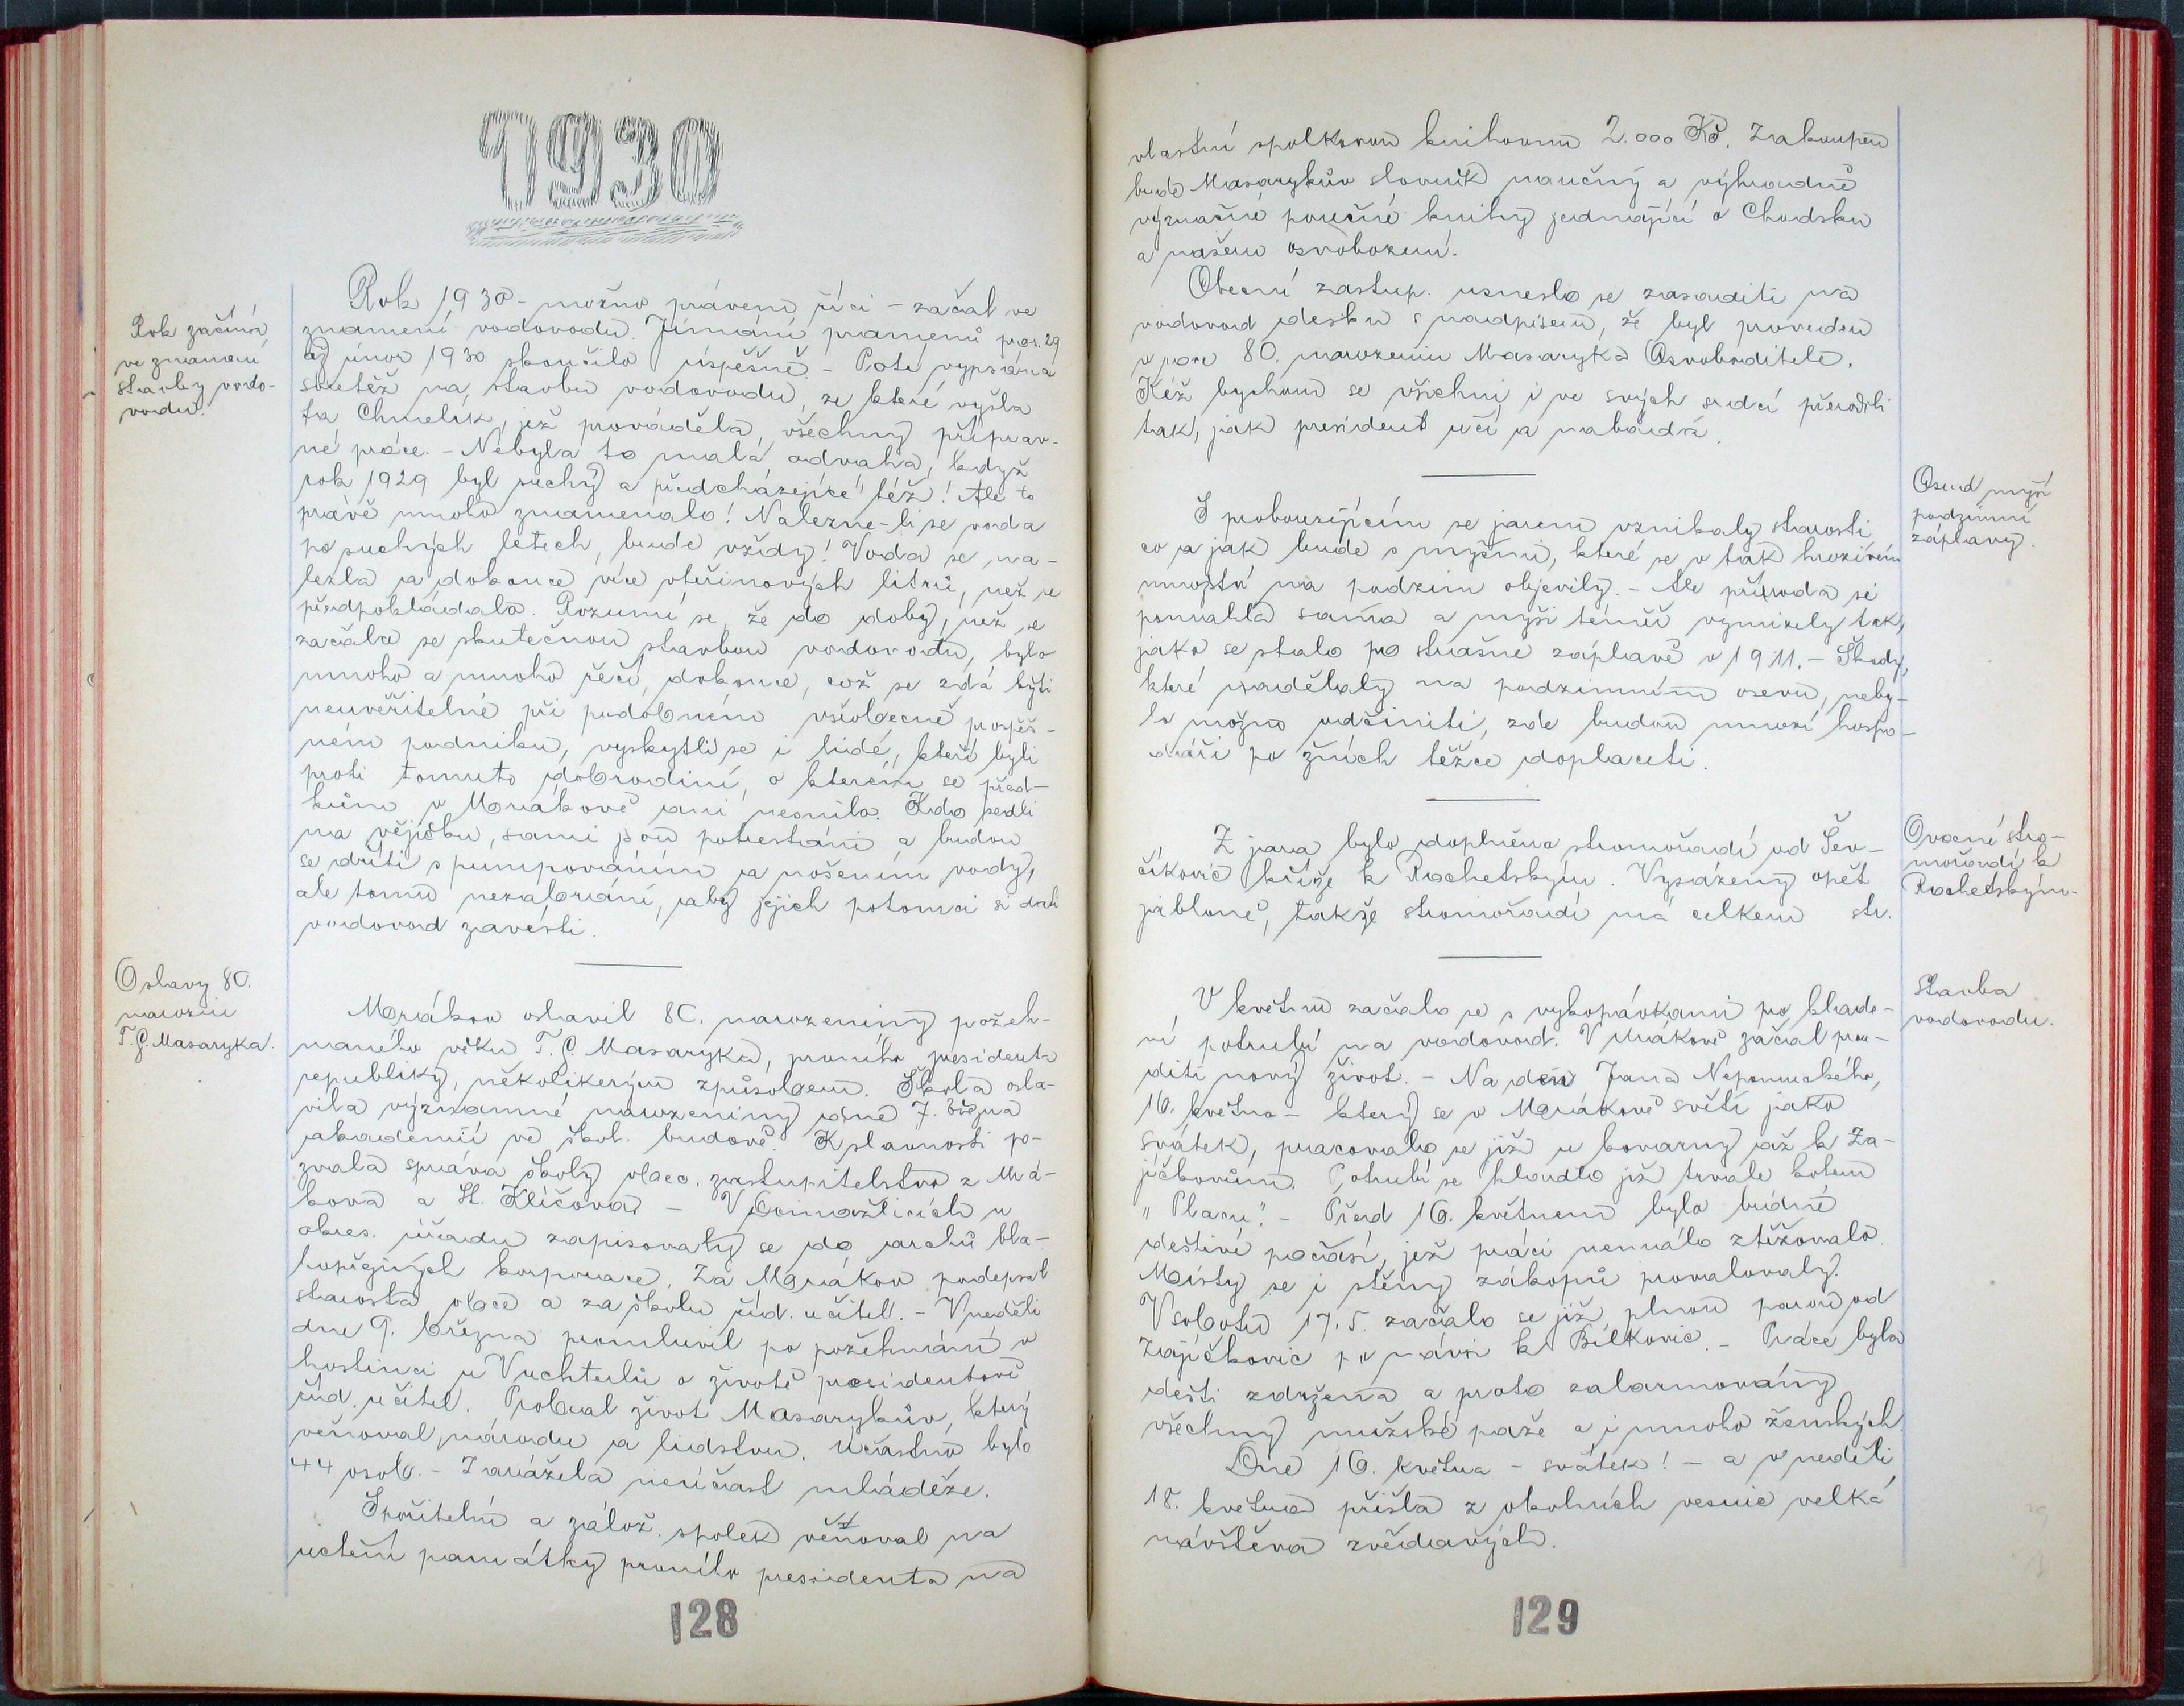 1930
Rok začíná
ve znamení
stavby vodo-
vodu.
Rok 1930 - možno právem říci - začal ve
znamení vodovodu. Jímání pramenů pros. 29
až únor 1930 skončilo úspěšně. - Poté vypsána
soutěž na stavbu vodovodu, ze které vyšla
fa Chmelík, jež prováděla všechny příprav-
né práce. - Nebyla to malá odvaha, když
rok 1929 byl suchý a předcházející též! Ale to
právě mnoho znamenalo! Nalezne-li se voda
po suchých letech, bude vždy! Voda se na-
lezla a dokonce více vteřinových litrů, než se
předpokládalo. Rozumí se, že do doby, než se
začalo se skutečnou stavbou vodovodu, bylo
mnoho a mnoho řečí, dokonce, což se zdá býti
neuvěřitelné při podobném všeobecně prospěš-
ném podniku, vyskytli se i lidé, kteří byli
proti tomuto dobrodiní, o kterém se před-
kům v Mrákově ani nesnilo. Kdo sedli
na vějičku, sami jsou potrestáni a budou
se dříti s pumpováním a nošením vody,
ale tomu nezabrání, aby jejich potomci si dali
vodovod zavésti.
Oslavy 80.
narozenin
T. G. Masaryka.
Mrákov oslavil 80. narozeniny požeh-
naného věku T. G. Masaryka, prvního presidenta
republiky, několikerým způsobem. Škola osla-
vila významné narozeniny dne 7. března
akademií ve škol. budově. K slavnosti po-
zvala správa školy obec. zastupitelstvo z Mrá-
kova a St. Klíčova. - V Domažlicích u
okres. úřadu zapisovaly se do archů bla-
hopřejných korporace. Za Mrákov podepsal
starosta obce a za školu říd. učitel. - V neděli
dne 9. března promluvil po požehnání v
hostinci u Vuchterlů o životě presidentově
říd. učitel. Probral život Masarykův, který
věnoval národu a lidstvu. Účastno bylo
44 osob. - Zarážela neúčast mládeže.
Spořitelní a zálož. spolek věnoval na
uctění památky prvního presidenta na
128
vlastní spolkovou knihovnu 2.000 Kč. Zakoupen
bude Masarykův slovník naučný a výhradně
význačné poučné knihy jednající o Chodsku
a našem osvobození.
Obecní zastup. usneslo se zasaditi na
vodovod desku s nadpisem, že byl proveden
v roce 80. narozenin Masaryka Osvoboditele.
Kéž bychom se všichni i ve svých srdcí přerodili
tak, jak president učí a nabádá.
Osud myší
podzimní
záplavy.
S probouzejícím se jarem vznikaly starosti
co a jak bude s myšmi, které se v tak hrozivém
množství na podzim objevily. - Ale příroda si
pomahla sama a myši téměř vymizely tak,
jako se stalo po strašné záplavě v 1911. - Škody,
které nadělaly na podzimním osevu, neby-
lo možno odčiniti, zde budou mnozí hospo-
dáři po žních těžce dopláceti.
Ovocné stro-
mořadí k
Rochetským.
Z jara bylo doplněno stromořadí od Šev-
číkovic kříže k Rochetským. Vysázeny opět
jabloně, takže stromořadí má celkem str.
Stavba
vodovodu.
V květnu začalo se s vykopávkami pro klade-
ní potrubí na vodovod. V Mrákově začal prou-
diti nový život. - Na den Jana Nepomuckého,
16. května - který se v Mrákově světí jako
svátek, pracovalo se již u kovárny až k Za-
jíčkovům. Potrubí se kladlo již trvale kolem
"Placu". - Před 16. květnem bylo bídné
deštivé počasí, jež práci nemálo ztěžovalo.
Místy se i stěny zákopů provalovaly.
V sobotu 17. 5. začalo se již plnou parou od
Zajíčkovic po návsi k Bílkovic. - Práce byla
dešti zdržena a proto zalarmovány
všechny mužské paže a i mnoho ženských.
Dne 16. května - svátek! - a v neděli
18. května přišla z okolních vesnic velká
návštěva zvědavých.
129